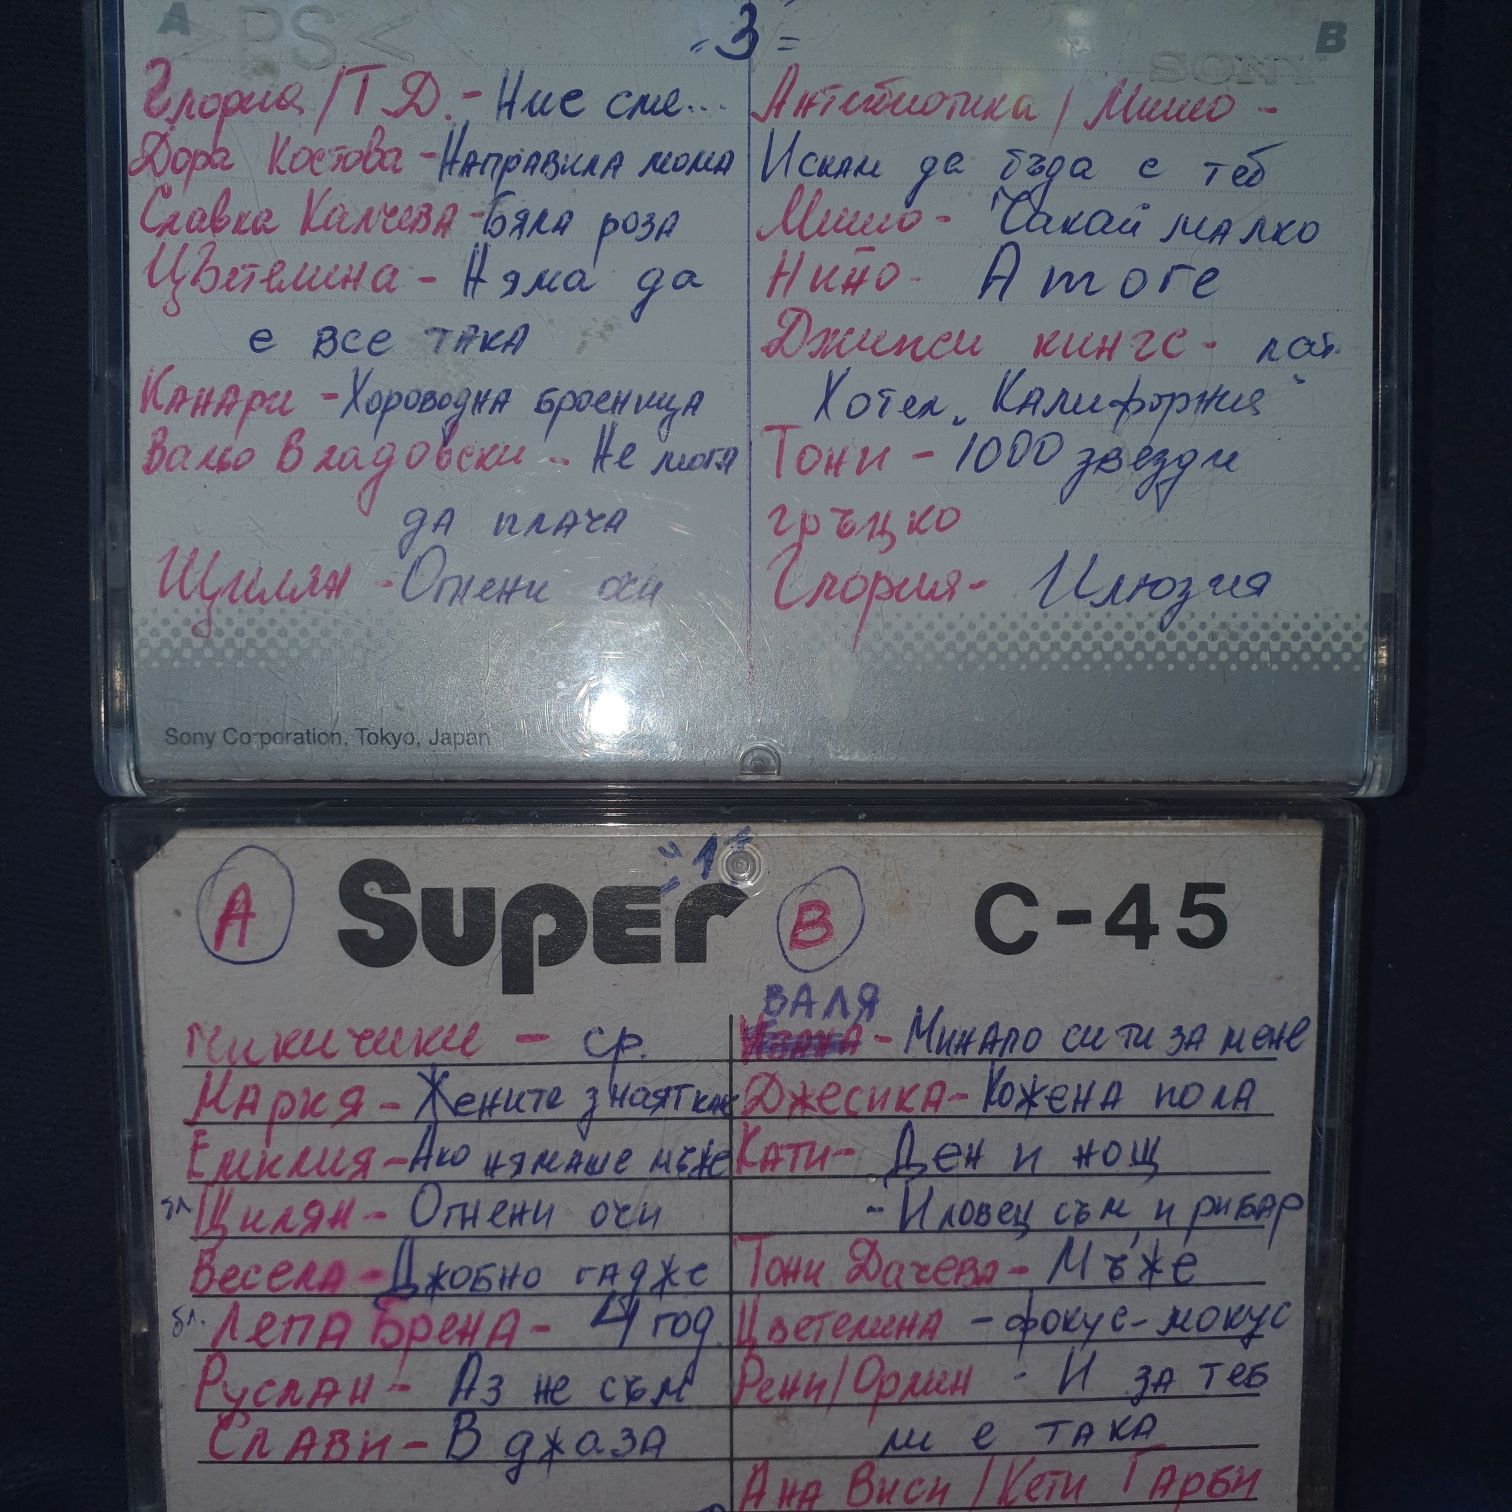 A >PS< „3“ SONY B
Глория / Т Д. - Ние сме...
Дора Костова - Направила мома
Славка Калчева - Бяла роза
Цветелина - Няма да
е все така
Канари - Хороводна броеница
Вальо Владовски - Не мога
да плача
Щилян - Огнени очи
Антибиотика / Мишо -
Искам да бъда с теб
Мишо - Чакай малко
Нино - Amore
Джипси кингс - лат.
Хотел „Калифорния“
Тони - 1000 звезди
гръцко
Глория - Илюзия
Sony Corporation, Tokyo, Japan
„1“
A Super B C-45
Чикичики - ср.
Мария - Жените знаят как
Емилия - Ако нямаше мъже
бл. Щилян - Огнени очи
Весела - Джобно гадже
бл. Лепа Брена - 4 год.
Руслан - Аз не съм
Слави - В джаза
ВАЛЯ
- Минало си ти за мене
Джесика - Кожена пола
Кати - Ден и нощ
- И ловец съм, и рибар
Тони Дачева - Мъже
Цветелина - фокус-мокус
Рени/Орлин - И за теб
ли е така
Ана Виси / Кети Гарби